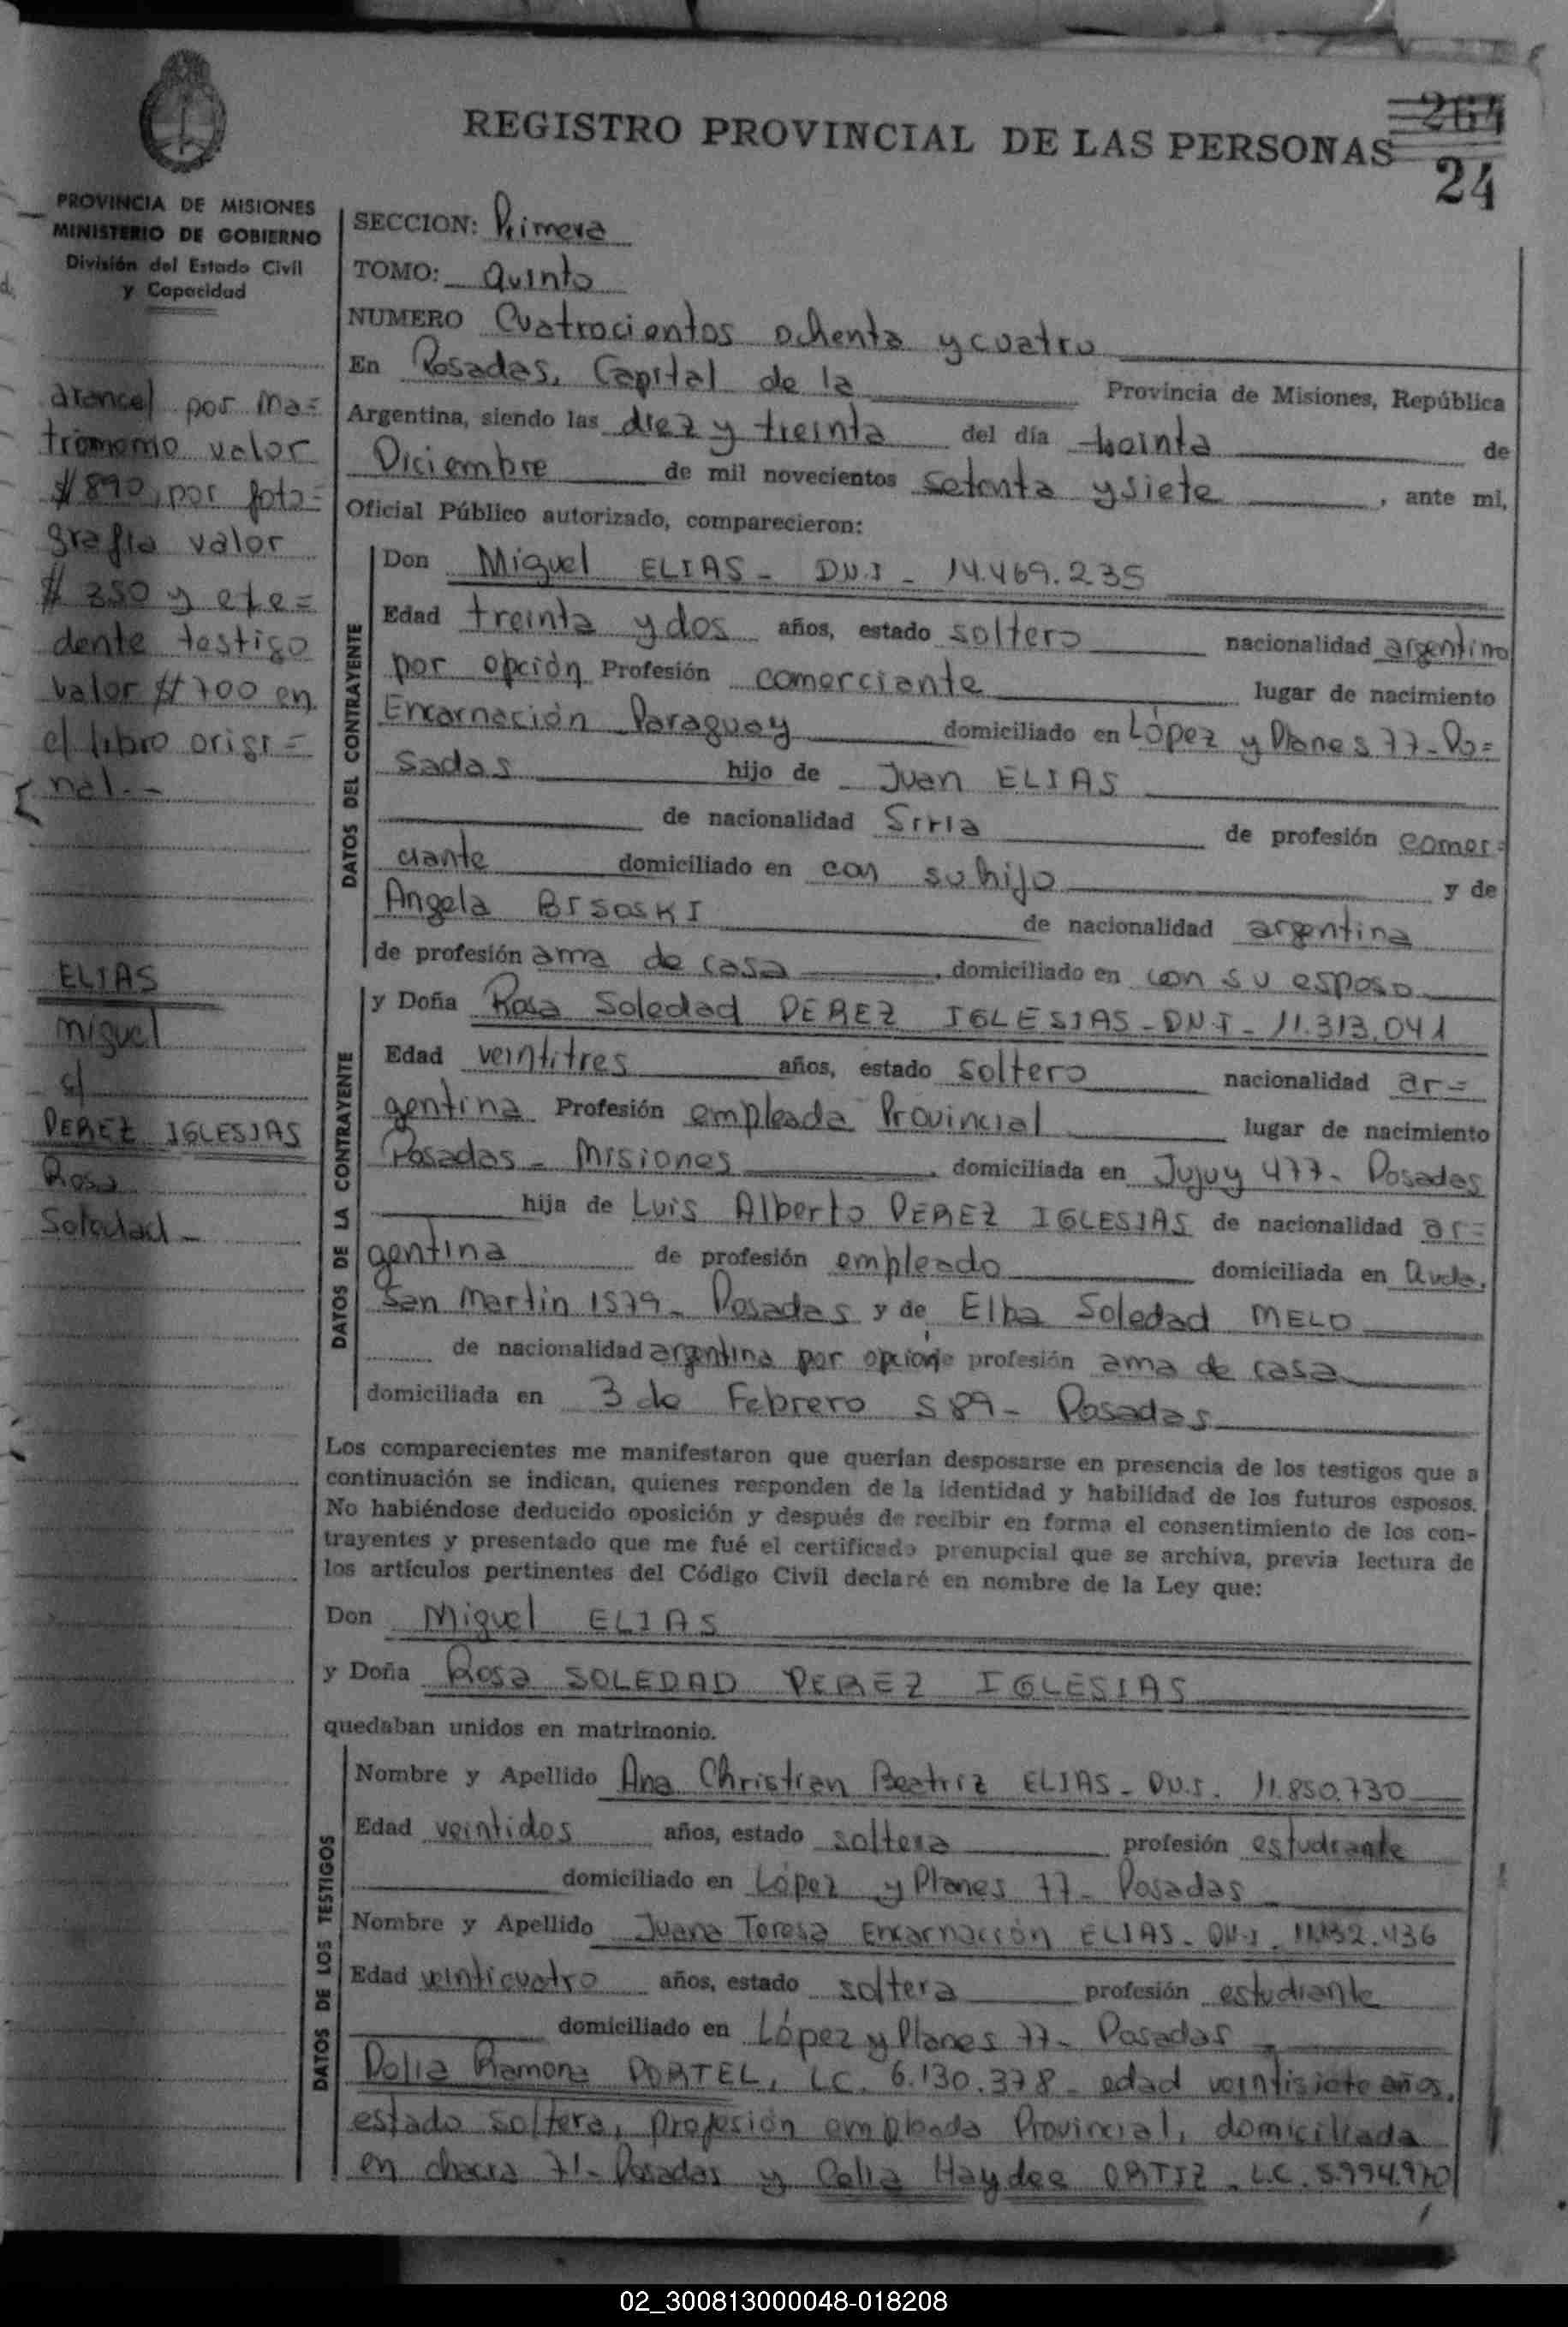 REGISTRO PROVINCIAL DE LAS PERSONAS
264
24
PROVINCIA DE MISIONES
MINISTERIO DE GOBIERNO
División del Estado Civil
y Capacidad
arancel por ma=
trimonio valor
$ 890, por foto=
grafia valor
$ 350 y
dente testigo
valor $ 700 en
el libro origi=
nal.-
ELIAS
Miguel
c/
PEREZ IGLESIAS
Rosa
Soledad -
SECCION: Primera
TOMO: Quinto
NUMERO Cuatrocientos ochenta y cuatro
En Posadas, Capital de la Provincia de Misiones, República
Argentina, siendo las diez y treinta del día treinta de
Diciembre de mil novecientos setenta y siete, ante mi,
Oficial Público autorizado, comparecieron:
DATOS DEL CONTRAYENTE
Don Miguel ELIAS - DN.I - 14.469.235
Edad treinta y dos años, estado soltero nacionalidad argentino
por opción Profesión comerciante lugar de nacimiento
Encarnación Paraguay domiciliado en López y Planes 77 - Po=
sadas hijo de Juan ELIAS
de nacionalidad Siria de profesión comer=
ciante domiciliado en con su hijo y de
Angela BISOSKI de nacionalidad argentina
de profesión ama de casa, domiciliado en con su esposo
DATOS DE LA CONTRAYENTE
y Doña Rosa Soledad PEREZ IGLESIAS - DN.I - 11.313.041
Edad veintitres años, estado soltero nacionalidad ar=
gentina Profesión empleada Provincial lugar de nacimiento
Posadas - Misiones, domiciliada en Jujuy 477 - Posadas
hija de Luis Alberto PEREZ IGLESIAS de nacionalidad ar=
gentina de profesión empleado domiciliada en Avda.
San Martin 1579 - Posadas y de Elba Soledad MELO
de nacionalidad argentina por opción de profesión ama de casa
domiciliada en 3 de Febrero 589 - Posadas
Los comparecientes me manifestaron que querían desposarse en presencia de los testigos que a
continuación se indican, quienes responden de la identidad y habilidad de los futuros esposos.
No habiéndose deducido oposición y después de recibir en forma el consentimiento de los con-
trayentes y presentado que me fué el certificado prenupcial que se archiva, previa lectura de
los artículos pertinentes del Código Civil declaré en nombre de la Ley que:
Don Miguel ELIAS
y Doña Rosa SOLEDAD PEREZ IGLESIAS
quedaban unidos en matrimonio.
DATOS DE LOS TESTIGOS
Nombre y Apellido Ana Christian Beatriz ELIAS - DN.I. 11.850.730
Edad veintidos años, estado soltera profesión estudiante
domiciliado en López y Planes 77 - Posadas
Nombre y Apellido Juana Teresa Encarnación ELIAS - DN.I -
Edad veinticuatro años, estado soltera profesión estudiante
domiciliado en López y Planes 77 - Posadas
Delia Ramona PORTEL, LC. 6.130.378 - edad veintisiete años,
estado soltera, profesión empleada Provincial, domiciliada
en chacra 71 - Posadas y Celia Haydee ORTIZ - L.C. 5.994.970
02_300813000048-018208